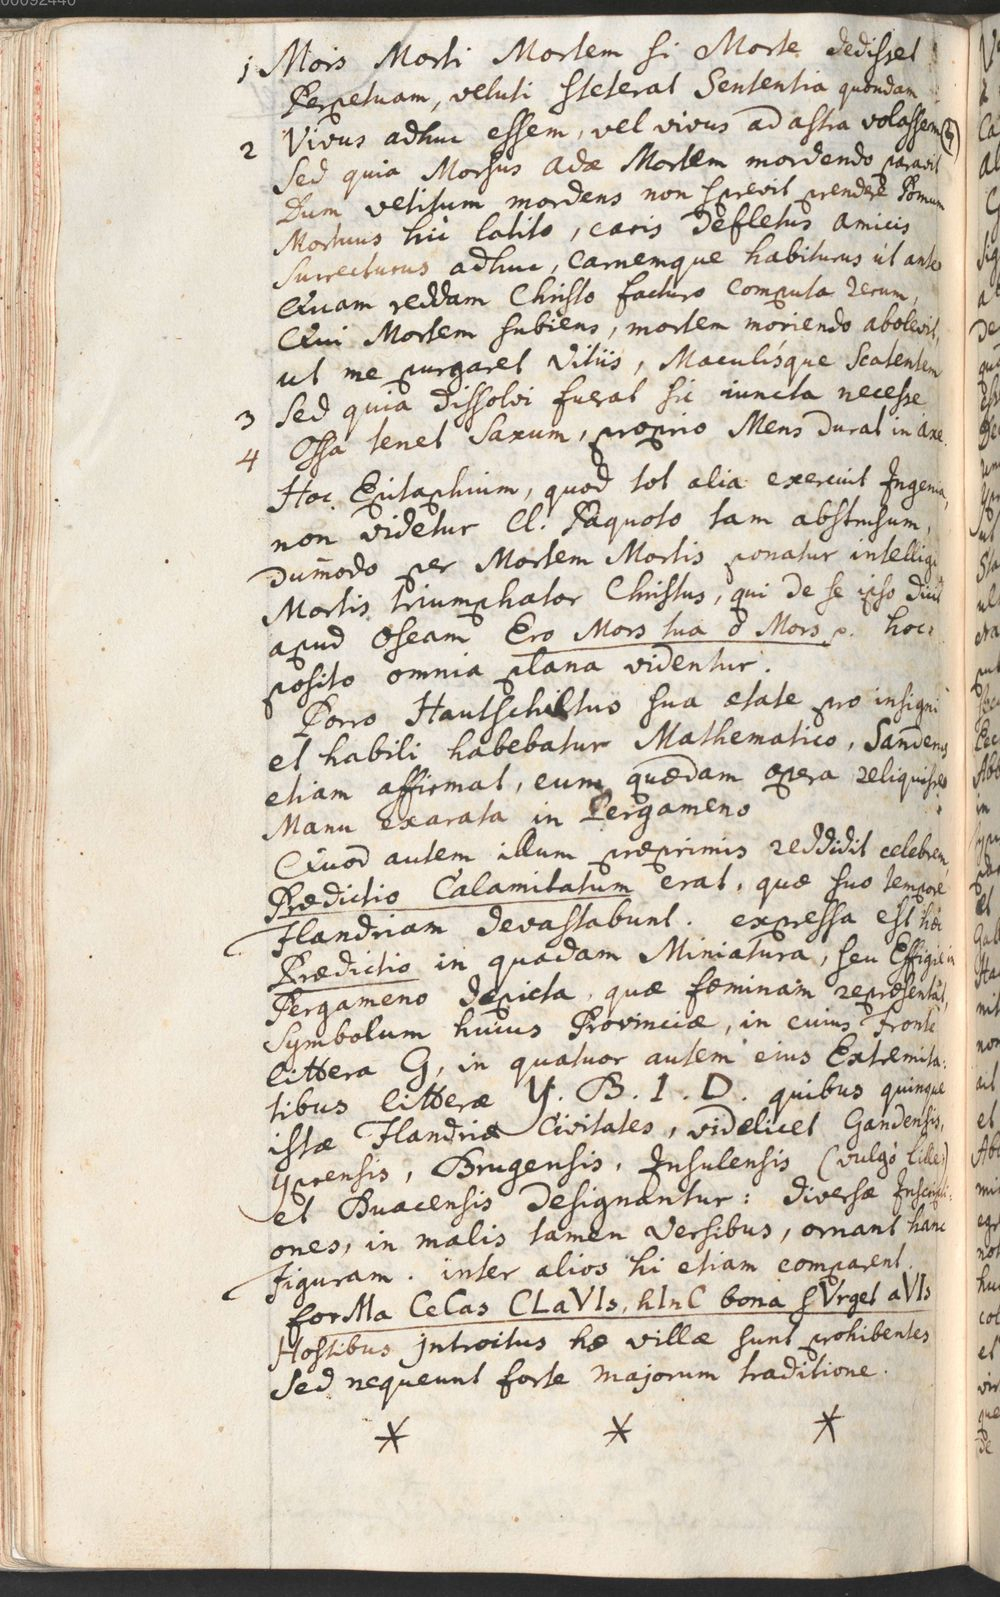 00092440
1 Mors Morti Mortem si Morte dedisset
Perpetuam, veluti steterat Sententia quondam
2 Vivus adhuc essem, vel vivus ad astra volassem
Sed quia Morsus Adæ Mortem mordendo paravit
Dum vetitum mordens non sprevit prendere Pomum
Mortuus hic latito, caris defletus amicis
Surrecturus adhuc, carnemque habiturus ut ante
Quam reddam Christo facturo computa rerum,
Qui Mortem subiens, mortem moriendo abolevit,
ut me purgaret Vitiis, Maculísque Scatentem
3 Sed quia dissolvi fuerat sic iuncta necesse
4 Ossa tenet Saxum, proprio Mens durat in axe.
Hoc Epitaphium, quod tot alia exercuit Ingenia,
non videtur Cl. Paquoto tam abstrusum,
dum̄odo per Mortem Mortis ponatur intelligi
Mortis triumphator Christus, qui de se ipso dicit
apud Oseam Ero Mors tua ô Mors p. hoc
posito omnia plana videntur.
Porro Hautschiltus sua etate pro insigni
et habili habebatur Mathematico, Sanderus
etiam affirmat, eum quædam opera reliquisse
Manu exarata in Pergameno
Quod autem illum præprimis reddidit celebrem,
Prædictio Calamitatum erat, quæ suo tempore
Flandriam devastabunt. expressa est hæc
Prædictio in quadam Miniatura, seu Effigie in
Pergameno depicta, quæ fæminam repræsentat,
Symbolum huius Provinciæ, in cuius Fronte
littera G, in quatuor autem eius Extremita:
tibus litteræ Y. B. I. D. quibus quinque
istæ Flandriæ Civitates, videlicet Gandensis,
yprensis, Brugensis, Insulensis (vulgò lille)
et Duacensis designantur: diversæ Inscripti:
ones, in malis tamen versibus, ornant hanc
Figuram. inter alios hi etiam comparent.
forMa CeCas CLaVIs, hInC bona sVrget aVIs
Hostibus jntroitus hæ villæ sunt prohibentes
Sed nequeunt forte majorum traditione.
* * *